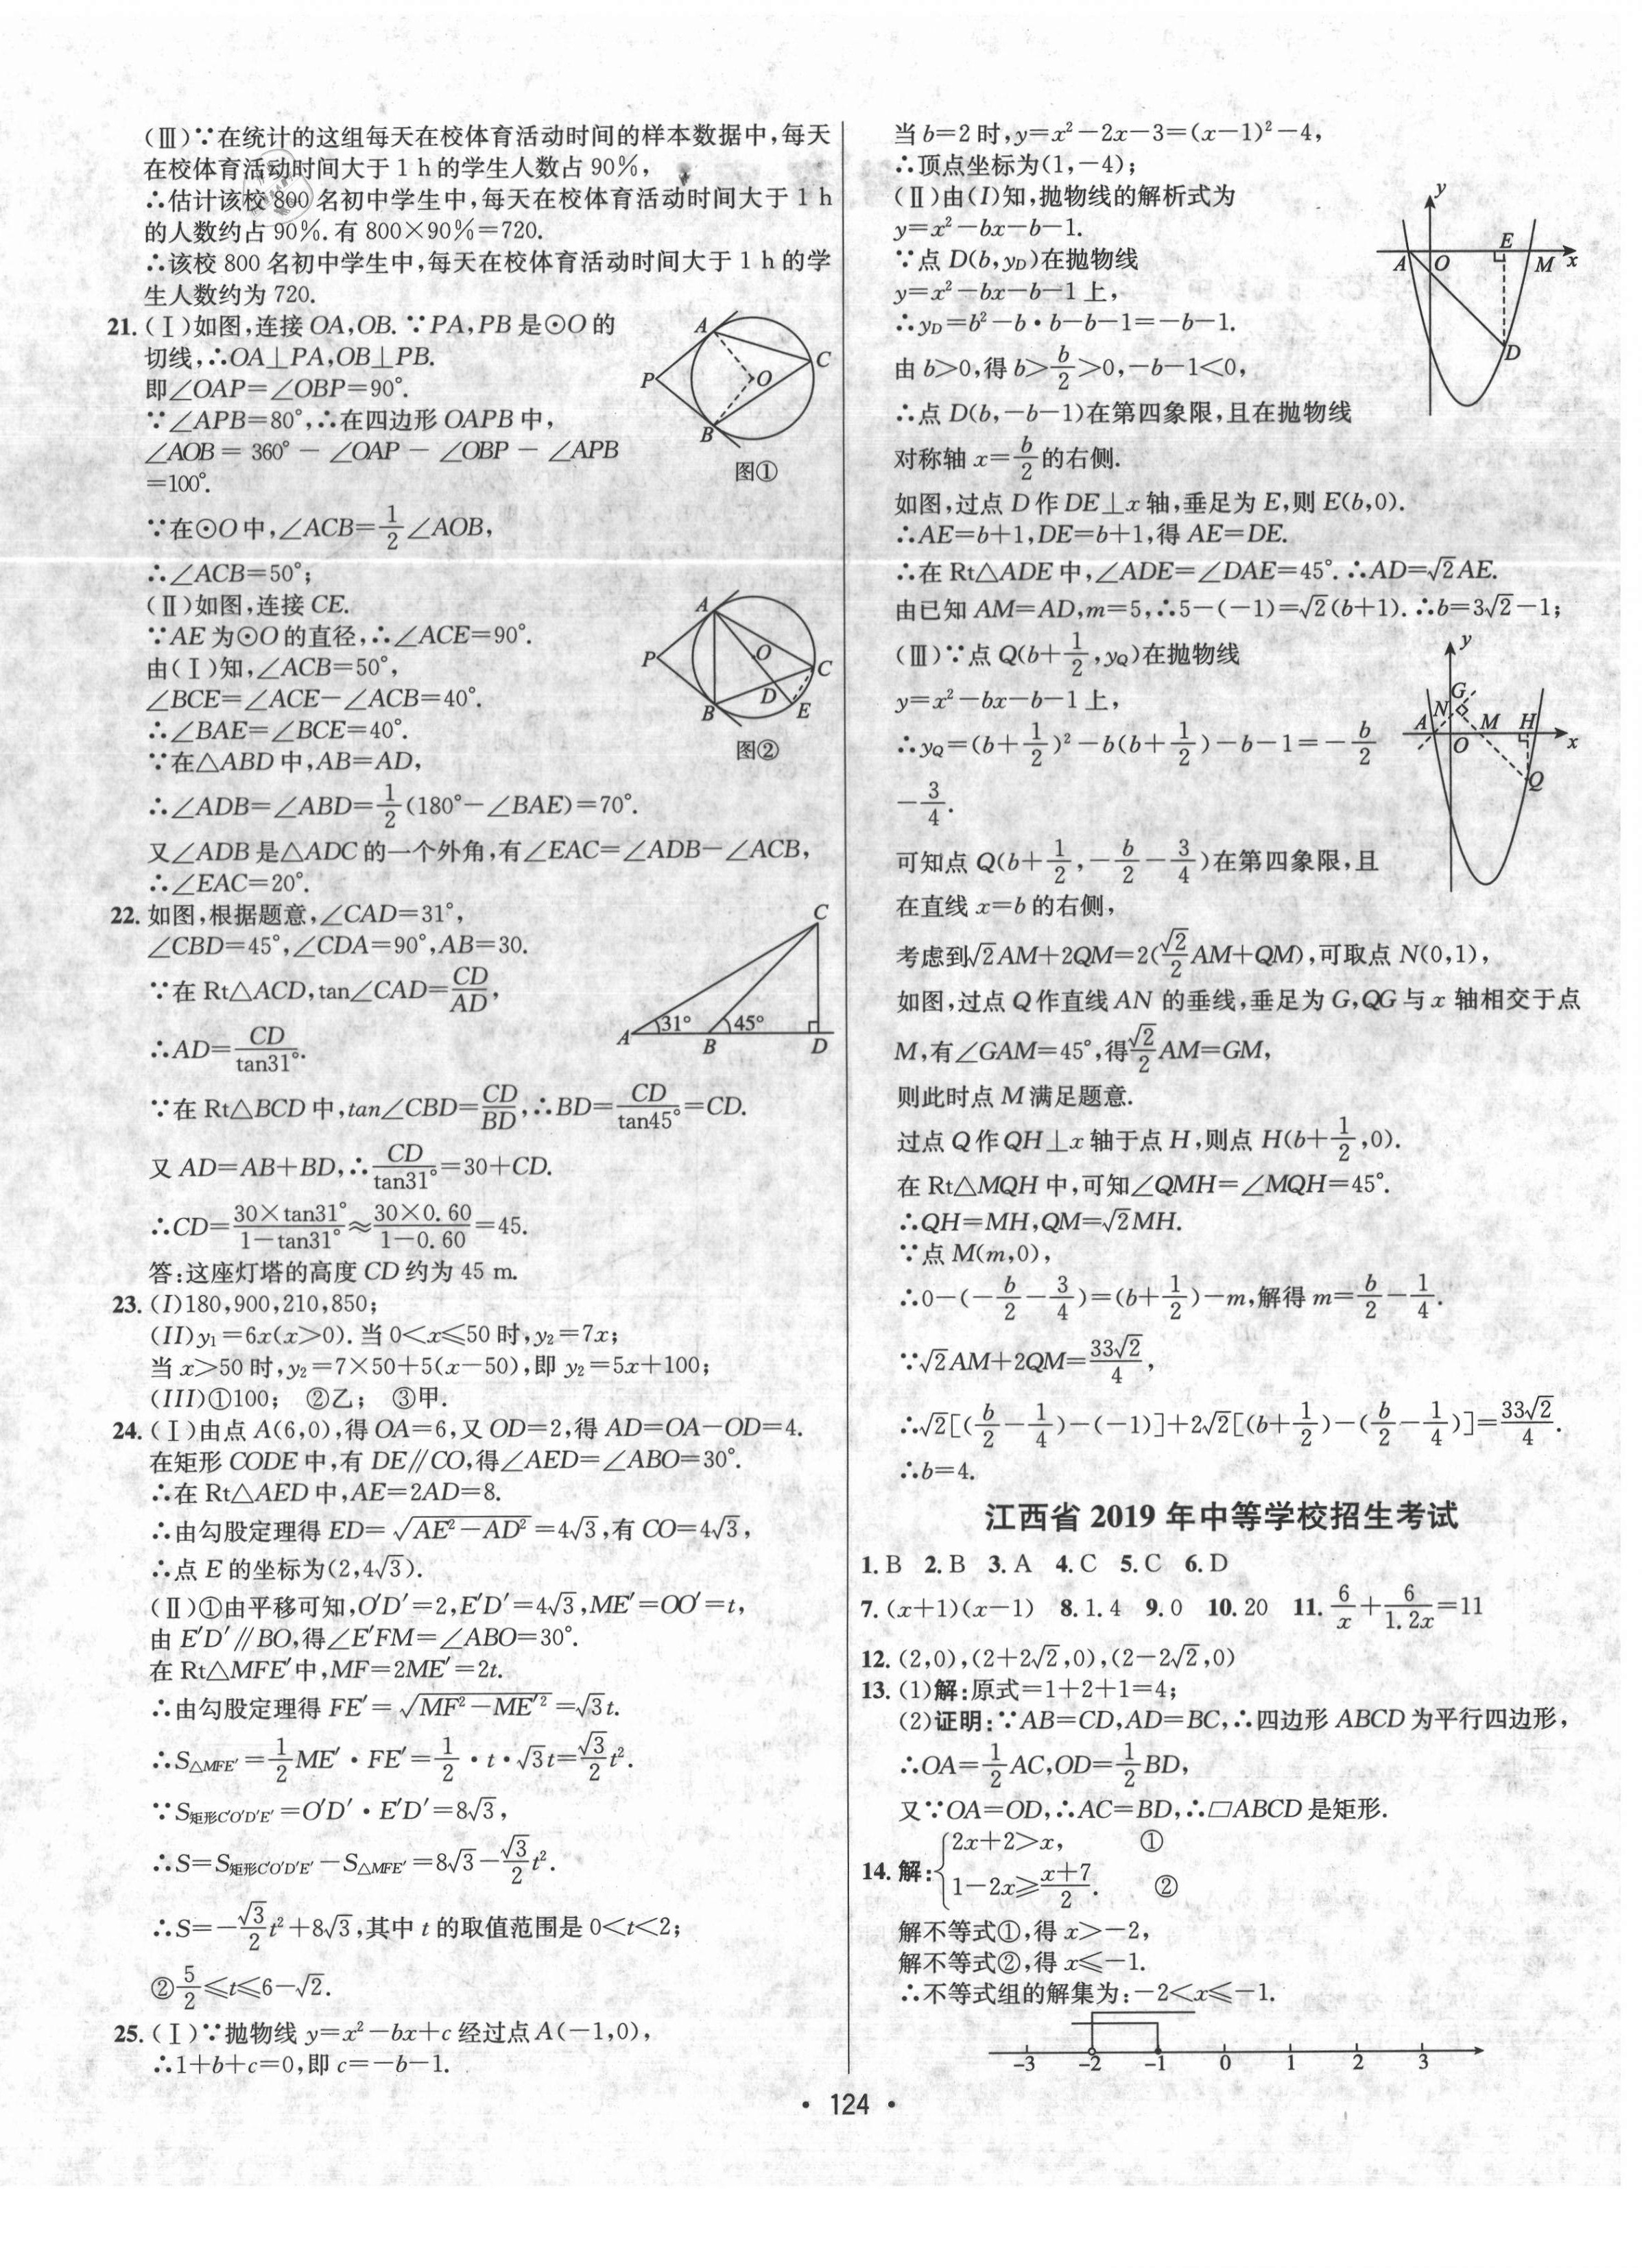 (Ⅲ)∵在统计的这组每天在校体育活动时间的样本数据中,每天
在校体育活动时间大于 1 h 的学生人数占 90%,
∴估计该校 800 名初中学生中,每天在校体育活动时间大于 1 h
的人数约占 90%. 有 800×90%=720.
∴该校 800 名初中学生中,每天在校体育活动时间大于 1 h 的学
生人数约为 720.
21. (Ⅰ)如图,连接 OA,OB. ∵PA,PB 是⊙O 的
切线,∴OA⊥PA,OB⊥PB.
即∠OAP=∠OBP=90°.
∵∠APB=80°,∴在四边形 OAPB 中,
∠AOB = 360° − ∠OAP − ∠OBP − ∠APB
=100°.
∵在⊙O 中,∠ACB=1/2∠AOB,
∴∠ACB=50°;
A
C
P
O
B
图①
(Ⅱ)如图,连接 CE.
∵AE 为⊙O 的直径,∴∠ACE=90°.
由(Ⅰ)知,∠ACB=50°,
∠BCE=∠ACE−∠ACB=40°.
∴∠BAE=∠BCE=40°.
∵在△ABD 中,AB=AD,
∴∠ADB=∠ABD=1/2(180°−∠BAE)=70°.
又∠ADB 是△ADC 的一个外角,有∠EAC=∠ADB−∠ACB,
∴∠EAC=20°.
A
P
O
C
D
B
E
图②
22. 如图,根据题意,∠CAD=31°,
∠CBD=45°,∠CDA=90°,AB=30.
∵在 Rt△ACD,tan∠CAD=CD/AD,
∴AD=CD/tan31°.
C
31°
45°
A
B
D
∵在 Rt△BCD 中,tan∠CBD=CD/BD,∴BD=CD/tan45°=CD.
又 AD=AB+BD,∴CD/tan31°=30+CD.
∴CD=30×tan31°/1−tan31°≈30×0.60/1−0.60=45.
答:这座灯塔的高度 CD 约为 45 m.
23. (I)180,900,210,850;
(II)y₁=6x(x>0). 当 0<x⩽50 时,y₂=7x;
当 x>50 时,y₂=7×50+5(x−50),即 y₂=5x+100;
(III)①100; ②乙; ③甲.
24. (Ⅰ)由点 A(6,0),得 OA=6,又 OD=2,得 AD=OA−OD=4.
在矩形 CODE 中,有 DE∥CO,得∠AED=∠ABO=30°.
∴在 Rt△AED 中,AE=2AD=8.
∴由勾股定理得 ED=√(AE²−AD²)=4√3,有 CO=4√3,
∴点 E 的坐标为(2,4√3).
(Ⅱ)①由平移可知,O′D′=2,E′D′=4√3,ME′=OO′=t,
由 E′D′∥BO,得∠E′FM=∠ABO=30°.
在 Rt△MFE′中,MF=2ME′=2t.
∴由勾股定理得 FE′=√(MF²−ME′²)=√3t.
∴S△MFE′=1/2ME′·FE′=1/2·t·√3t=√3/2t².
∵S矩形C′O′D′E′=O′D′·E′D′=8√3,
∴S=S矩形C′O′D′E′−S△MFE′=8√3−√3/2t².
∴S=−√3/2t²+8√3,其中 t 的取值范围是 0<t<2;
②5/2⩽t⩽6−√2.
25. (Ⅰ)∵抛物线 y=x²−bx+c 经过点 A(−1,0),
∴1+b+c=0,即 c=−b−1.
当 b=2 时,y=x²−2x−3=(x−1)²−4,
∴顶点坐标为(1,−4);
(Ⅱ)由(I)知,抛物线的解析式为
y=x²−bx−b−1.
∵点 D(b,yD)在抛物线
y=x²−bx−b−1 上,
∴yD=b²−b·b−b−1=−b−1.
由 b>0,得 b>b/2>0,−b−1<0,
∴点 D(b,−b−1)在第四象限,且在抛物线
对称轴 x=b/2的右侧.
y
E
A
O
M
x
D
如图,过点 D 作 DE⊥x 轴,垂足为 E,则 E(b,0).
∴AE=b+1,DE=b+1,得 AE=DE.
∴在 Rt△ADE 中,∠ADE=∠DAE=45°. ∴AD=√2AE.
由已知 AM=AD,m=5,∴5−(−1)=√2(b+1). ∴b=3√2−1;
(Ⅲ)∵点 Q(b+1/2,yQ)在抛物线
y=x²−bx−b−1 上,
∴yQ=(b+1/2)²−b(b+1/2)−b−1=−b/2
−3/4.
可知点 Q(b+1/2,−b/2−3/4)在第四象限,且
在直线 x=b 的右侧,
y
G
N
A
M
H
O
x
Q
考虑到√2AM+2QM=2(√2/2AM+QM),可取点 N(0,1),
如图,过点 Q 作直线 AN 的垂线,垂足为 G,QG 与 x 轴相交于点
M,有∠GAM=45°,得√2/2AM=GM,
则此时点 M 满足题意.
过点 Q 作 QH⊥x 轴于点 H,则点 H(b+1/2,0).
在 Rt△MQH 中,可知∠QMH=∠MQH=45°.
∴QH=MH,QM=√2MH.
∵点 M(m,0),
∴0−(−b/2−3/4)=(b+1/2)−m,解得 m=b/2−1/4.
∵√2AM+2QM=33√2/4,
∴√2[(b/2−1/4)−(−1)]+2√2[(b+1/2)−(b/2−1/4)]=33√2/4.
∴b=4.
江西省 2019 年中等学校招生考试
1. B 2. B 3. A 4. C 5. C 6. D
7. (x+1)(x−1) 8. 1.4 9. 0 10. 20 11. 6/x+6/1.2x=11
12. (2,0),(2+2√2,0),(2−2√2,0)
13. (1)解:原式=1+2+1=4;
(2)证明:∵AB=CD,AD=BC,∴四边形 ABCD 为平行四边形,
∴OA=1/2AC,OD=1/2BD,
又∵OA=OD,∴AC=BD,∴▱ABCD 是矩形.
14. 解:{2x+2>x, ①
1−2x⩾x+7/2. ②
解不等式①,得 x>−2,
解不等式②,得 x⩽−1.
∴不等式组的解集为:−2<x⩽−1.
−3 −2 −1 0 1 2 3
• 124 •